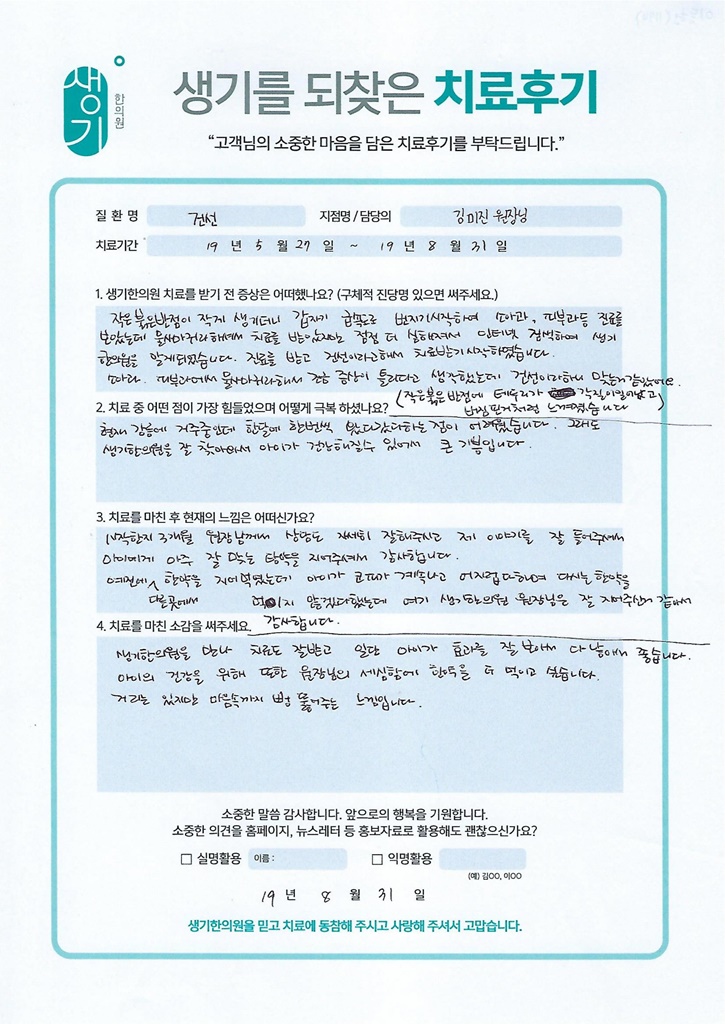 생기 한의원
생기를 되찾은 치료후기
“고객님의 소중한 마음을 담은 치료후기를 부탁드립니다.”
질 환 명 건선 지점명 / 담당의 김미진 원장님
치료기간 19 년 5 월 27 일 ~ 19 년 8 월 31 일
1. 생기한의원 치료를 받기 전 증상은 어떠했나요? (구체적 진단명 있으면 써주세요.)
작은 붉은반점이 작게 생기더니 갑자기 급속도로 번지기시작하여 소아과, 피부과등 진료를
보았는데 물사마귀라하셔서 치료를 받았지만 점점 더 심해져서 인터넷 검색하여 생기
한의원을 알게되었습니다. 진료를 받고 건선이라고해서 치료받기시작하였습니다.
피부과에서 물사마귀라해서 증상이 틀리다고 생각했는데 건선이라하니 맞는거같았어요.
(작은 붉은 반점에 테두리가 각질이일어났고
2. 치료 중 어떤 점이 가장 힘들었으며 어떻게 극복 하셨나요?
느껴졌습니다
현재 강릉에 거주중인데 한달에 한번씩 왔다갔다하는 점이 어려웠습니다. 그래도
생기한의원을 잘 찾아와서 아이가 건강해질수 있어서 큰 기쁨입니다.
3. 치료를 마친 후 현재의 느낌은 어떠신가요?
시작한지 3개월 원장님께서 상담도 자세히 잘해주시고 제 이야기를 잘 들어주셔서
아이에게 아주 잘 맞는 탕약을 지어주셔서 감사합니다.
예전에 한약을 지어먹였는데 아이가 코피가 계속나고 어지럽다하여 다시는 한약을
다른곳에서 먹이지 않겠다했는데 여기 생기한의원 원장님은 잘 지어주신거 같아서
4. 치료를 마친 소감을 써주세요. 감사합니다.
생기한의원을 만나 치료도 잘받고 일단 아이가 효과를 잘 보아서 다 나아서 좋습니다.
아이의 건강을 위해 또한 원장님의 세심함에 한약을 더 먹이고 싶습니다.
거리는 있지만 마음속까지 뻥 뚫어주는 느낌입니다.
소중한 말씀 감사합니다. 앞으로의 행복을 기원합니다.
소중한 의견을 홈페이지, 뉴스레터 등 홍보자료로 활용해도 괜찮으신가요?
□ 실명활용 이름 : □ 익명활용
(예) 김OO, 이OO
19 년 8 월 31 일
생기한의원을 믿고 치료에 동참해 주시고 사랑해 주셔서 고맙습니다.